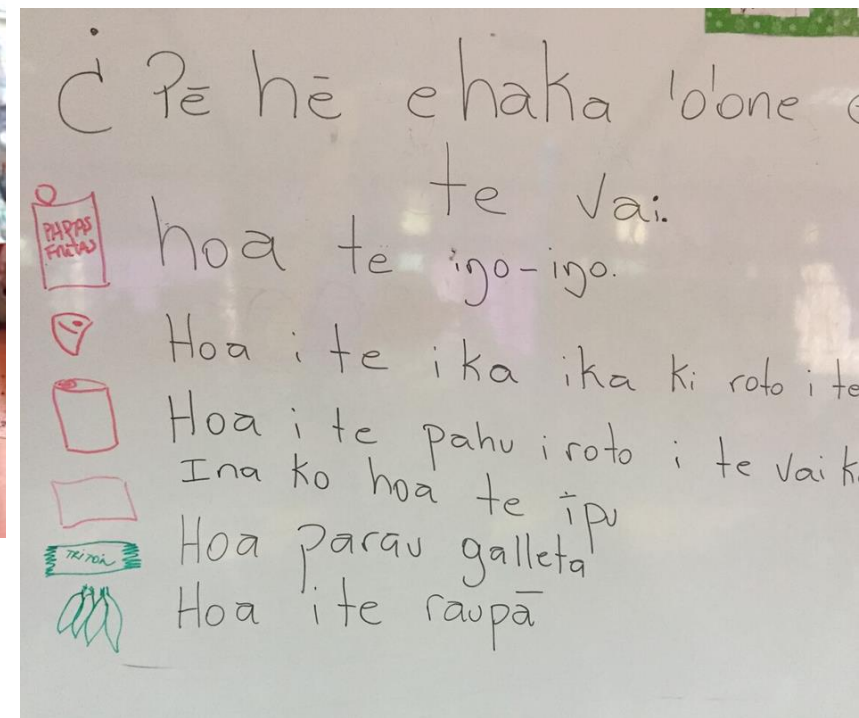 ¿ Pē hē e haka 'o'one
te vai.
PAPAS
Fritas
hoa te iŋo-iŋo.
Hoa i te ika ika ki roto i te
Hoa i te pahu i roto i te vai
Ina ko hoa te īpu
TRITON
Hoa parau galleta
Hoa i te raupā